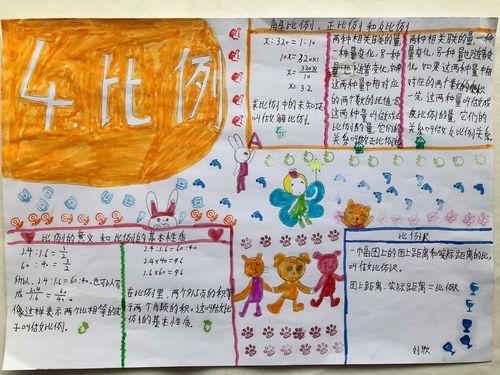 4.比例
解比例、正比例和反比例
x:320=1:10
10x=320×1
x=320×1/10
x=32
求比例中的未知项
叫做解比例。
两种相关联的量,
一种量变化,另一种
量也随着变化,如果
这两种量中相对应
的两个数的比值一定
这两种量叫做成正
比例的量,它们的
关系叫做正比例关系
两种相关联的量,一种
量变化,另一种量也随着
变化,如果这两种量中相
对应的两个数的乘积
一定,这两种量叫做成
反比例的量,它们的
关系叫做反比例关系
A
比例的意义和比例的基本性质
2.4:1.6=3/2
60:40=3/2
所以,2.4:1.6=60:40.也可以写
成2.4/1.6=60/40。
像这样表示两个比相等的式
子叫做比例。
2.4:1.6=60:40
2.4×40=96
1.6×60=96
在比例里,两个外项的积等
于两个内项的积。这叫做比
例的基本性质。
比例尺
一幅图的图上距离和实际距离的比,
叫做比例尺。
图上距离:实际距离=比例尺